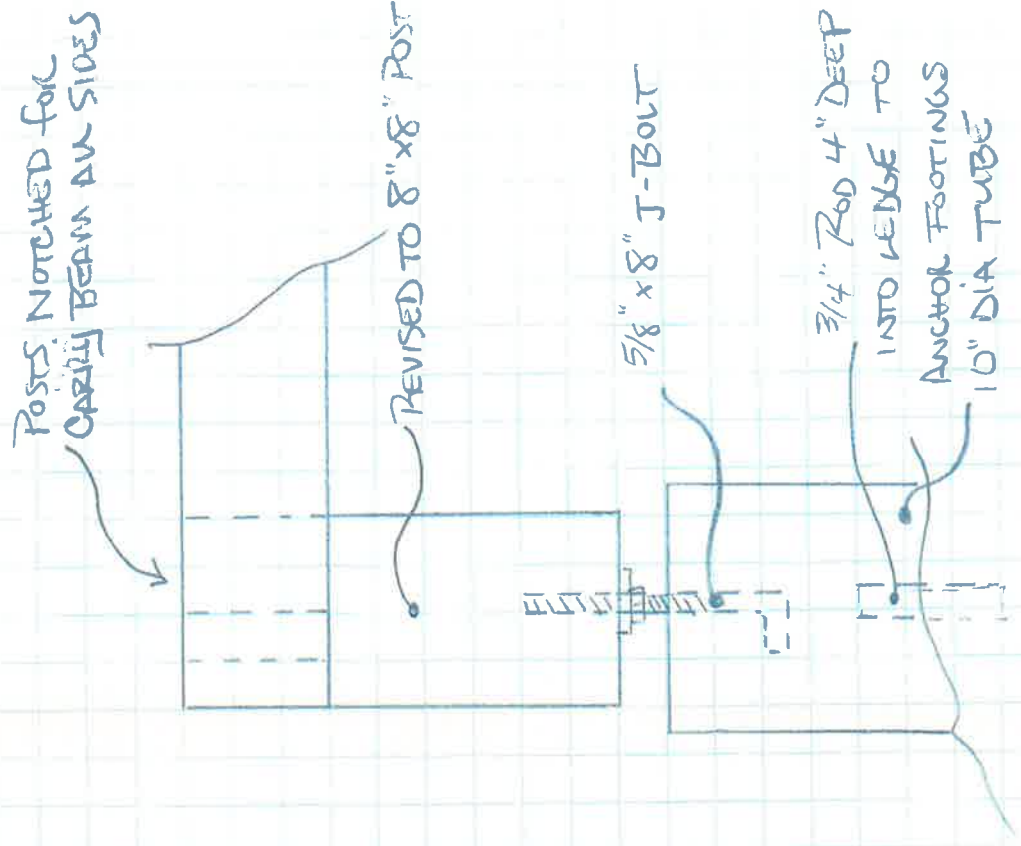 POSTS NOTCHED FOR
CARRY BEAM ON SIDES
REVISED TO 8"x8" POST
5/8" x 8" J-BOLT
3/4" ROD 4" DEEP
INTO LEDGE TO
ANCHOR FOOTINGS
10" DIA TUBE